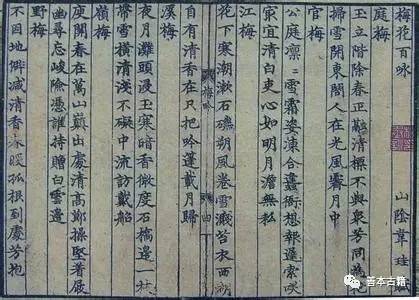 梅花百咏
山陰韋珪
庭梅
玉立階除春正融清標不與衆芳同
掃雪開東閣人在光風霽月中
官梅
公庭凛凛雪霜姿凍合衙想報遲索咲
冣宜清白吏心如明月澹無私
江梅
花下寒潮漱石磯朔風卷雪濺苔衣西
自有清香在只把吟蓬載月歸
四
溪梅
夜月灘頭浸玉寒暗香微度石橋邊一
帶雪橫清淺不礙中流訪戴船
嶺梅
庾開春在萬山巔出處清高操堅着屐
幽尋忘峻險憑誰持贈白雲邊
野梅
不因地僻減清香孤根到處芳抱
善本古籍